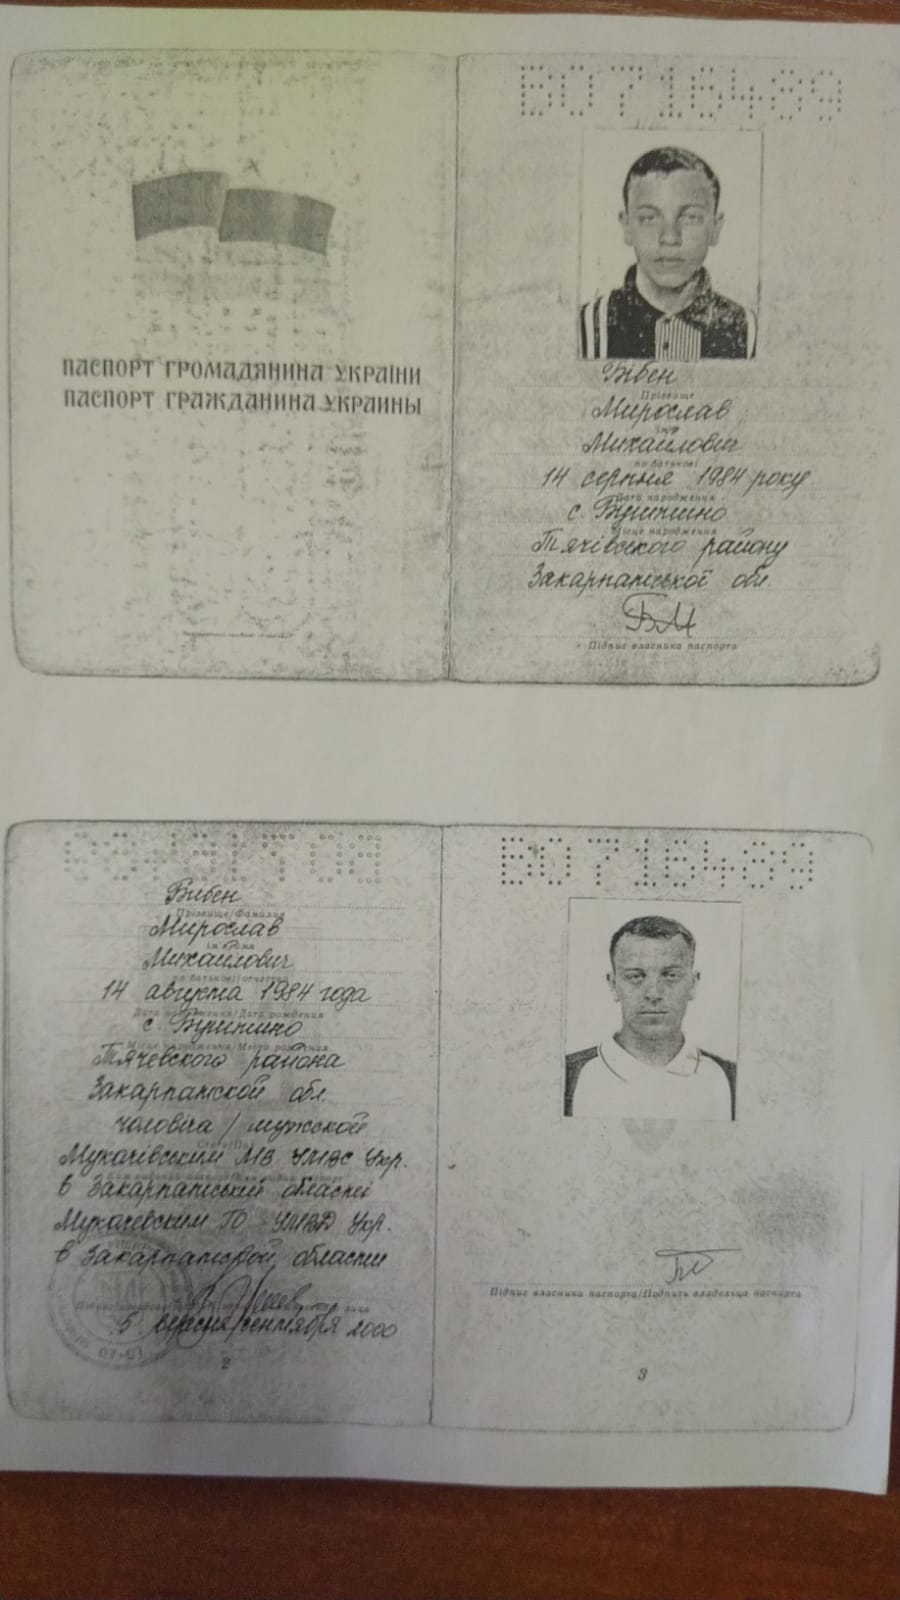 ПАСПОРТ ГРОМАДЯНИНА УКРАЇНИ
ПАСПОРТ ГРАЖДАНИНА УКРАИНЫ
ВО716489
Бібен
Прізвище
Мирослав
ім'я
Михайлович
по батькові
14 серпня 1984 року
Дата народження
с. Вучино
Місце народження
Тячівського району
Закарпатської обл.
БМ
Підпис власника паспорта
Бибен
Прізвище/Фамилия
Мирослав
Михайлович
по батькові/отчество
14 августа 1984 года
Дата народження/Дата рождения
с.
Місце народження/Место рождения
Тячевского района
Закарпатской обл.
чоловіча / мужской
Мукачівським МВ УМВС Укр.
в Закарпатській області
Мукачевским ГО УМВД Укр.
в Закарпатской области
5 вересня/сентября 2000
2
ВО716489
Підпис власника паспорта/Подпись владельца паспорта
3